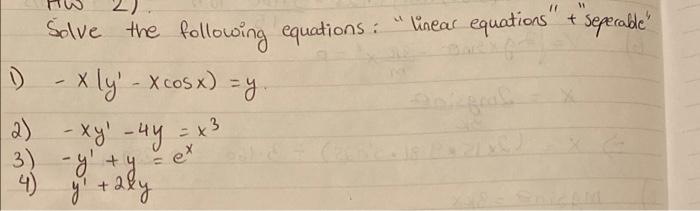 HW 2)
Solve the following equations: "linear equations" + "seperable"
1) - x(y' - x cos x) = y.
2) - xy' - 4y = x³
3) - y' + y = eˣ
4) y' + 2xy